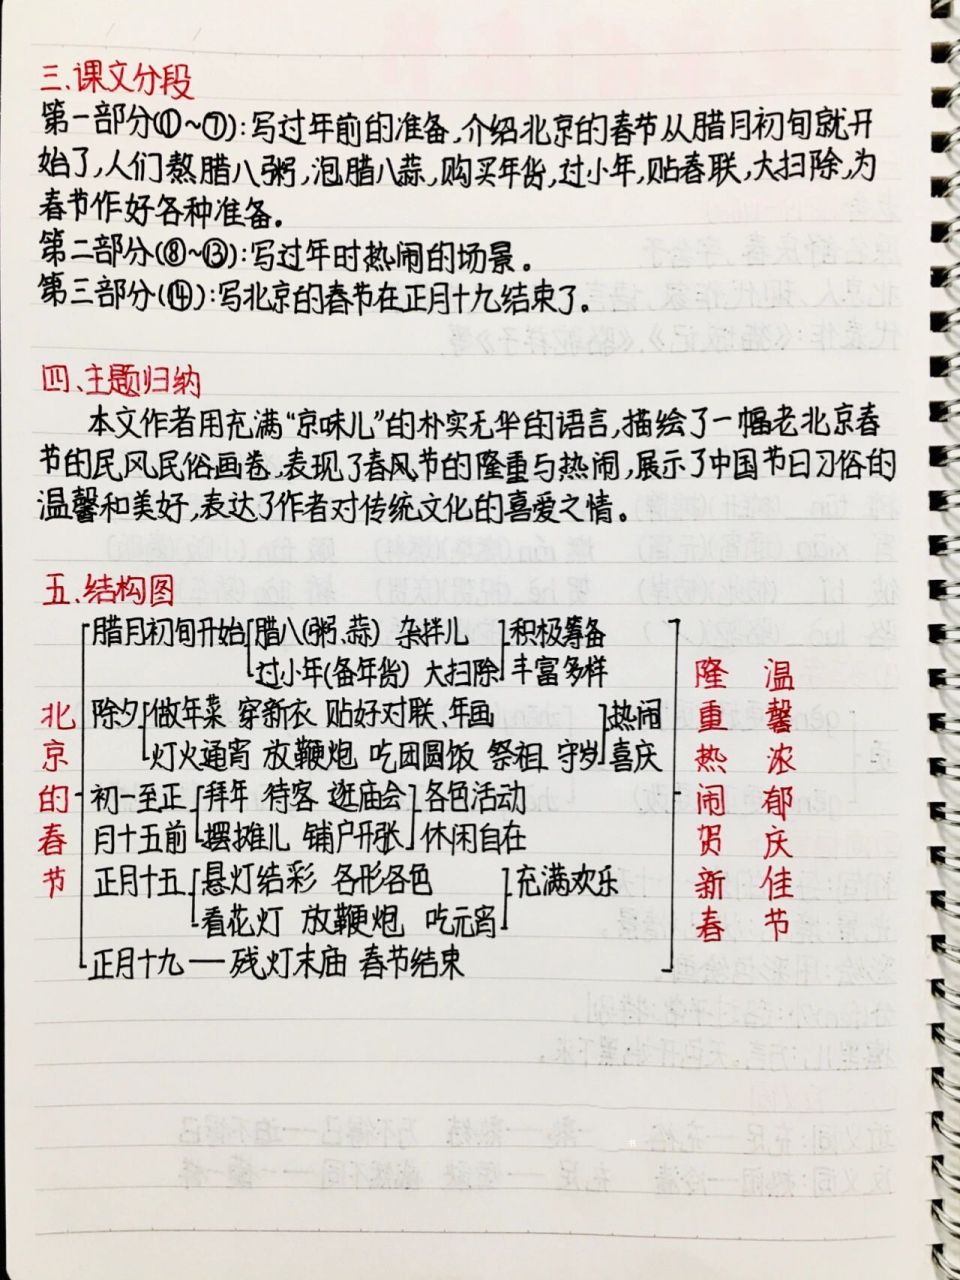 三、课文分段
第一部分(①~⑦):写过年前的准备,介绍北京的春节从腊月初旬就开
始了,人们熬腊八粥,泡腊八蒜,购买年货,过小年,贴春联,大扫除,为
春节作好各种准备。
第二部分(⑧~⑬):写过年时热闹的场景。
第三部分(⑭):写北京的春节在正月十九结束了。
四、主题归纳
本文作者用充满“京味儿”的朴实无华的语言,描绘了一幅老北京春
节的民风民俗画卷,表现了春风节的隆重与热闹,展示了中国节日习俗的
温馨和美好,表达了作者对传统文化的喜爱之情。
五、结构图
北京的春节
腊月初旬开始 腊八(粥、蒜) 杂拌儿 积极筹备
过小年(备年货) 大扫除 丰富多样
除夕 做年菜 穿新衣 贴好对联、年画 热闹
灯火通宵 放鞭炮 吃团圆饭 祭祖 守岁 喜庆
初一至正 拜年 待客 逛庙会 各色活动
月十五前 摆摊儿 铺户开张 休闲自在
正月十五 悬灯结彩 各形各色 充满欢乐
看花灯 放鞭炮 吃元宵
正月十九——残灯末庙 春节结束
隆重热闹贺新春
温馨浓郁庆佳节